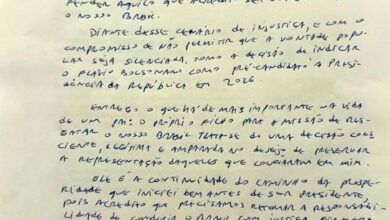 FENDER AQUILO QUE ACREDITO SER
O NOSSO BRASIL.
DIANTE DESSE CENÁRIO DE INJUSTIÇA, E COM O
COMPROMISSO DE NÃO PERMITIR QUE A VONTADE POPU-
LAR SEJA SILENCIADA, TOMO A DECISÃO DE INDICAR
O FLAVIO BOLSONARO COMO PRÉ-CANDIDATO À PRESI-
DÊNCIA DA REPÚBLICA EM 2026.
ENTREGO O QUE HÁ DE MAIS IMPORTANTE NA VIDA
DE UM PAI: O PRÓPRIO FILHO PARA A MISSÃO DE RES-
GATAR O NOSSO BRASIL. TRATA-SE DE UMA DECISÃO CONS-
CIENTE, LEGÍTIMA E AMPARADA NO DESEJO DE PRESERVAR
A REPRESENTAÇÃO DAQUELES QUE CONFIARAM EM MIM.
ELE É A CONTINUIDADE DO CAMINHO DA PROSPE-
RIDADE QUE INICIEI BEM ANTES DE SER PRESIDENTE
POIS ACREDITO QUE PRECISAMOS RETOMAR A RESPONSABI-
LIDADE DE CONDUZIR O BRASIL COM JUSTIÇA